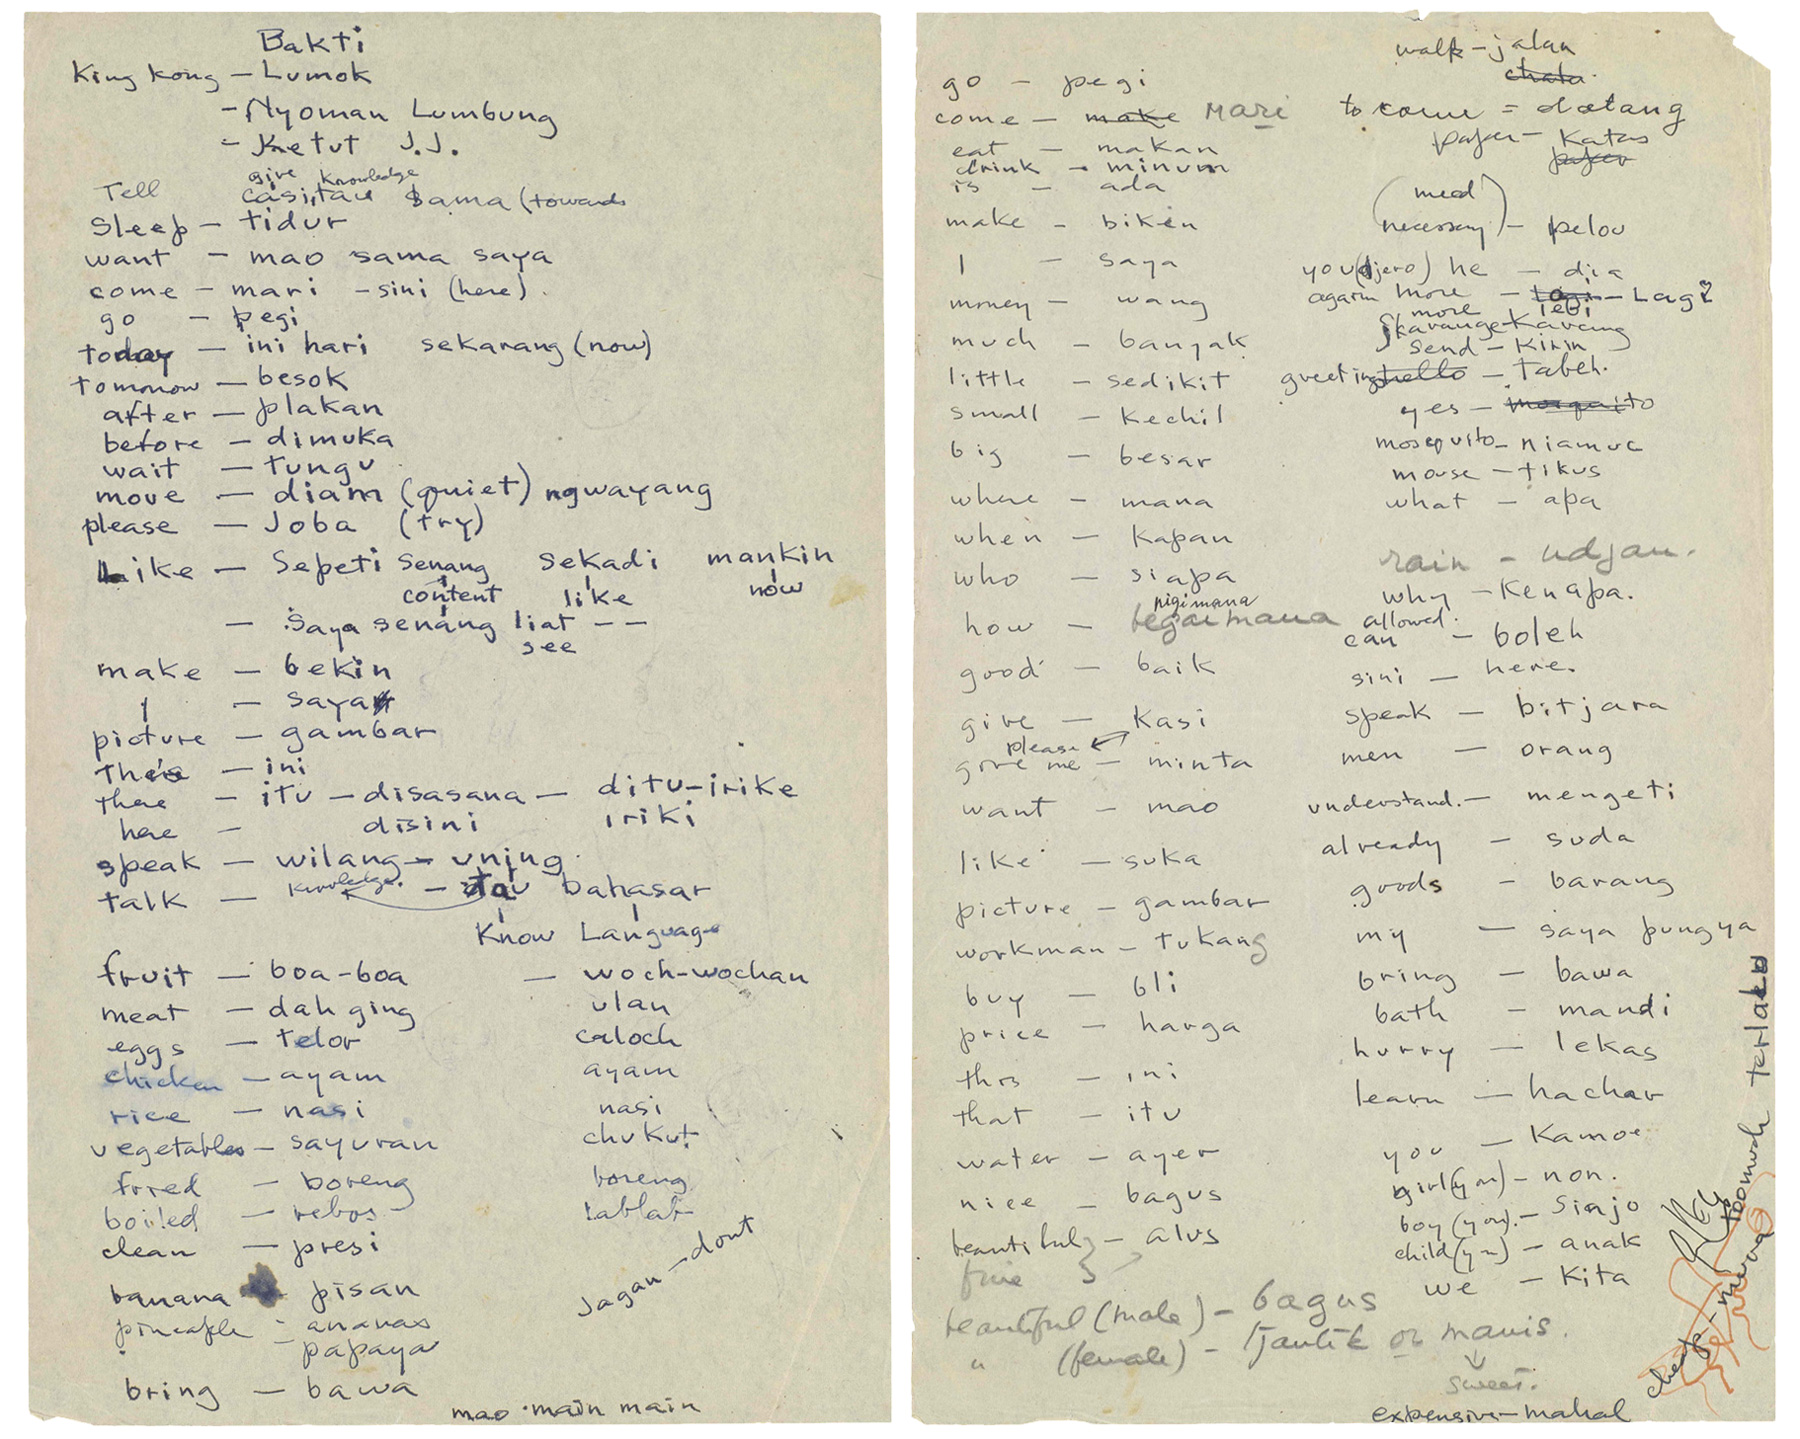 Bakti
King Kong - Lumok
- Nyoman Lumbung
- Ketut J.J.
give knowledge
Tell casi, tau sama (towards
Sleep - tidur
want - mao sama saya
come - mari - sini (here)
go - pegi
today - ini hari sekarang (now)
tomorrow - besok
after - plakan
before - dimuka
wait - tungu
move - diam (quiet) ngwayang
please - Joba (try)
Like - Sepeti senang sekadi mankin
content like now
- Saya senang liat - -
see
make - bekin
I - saya
picture - gambar
this - ini
there - itu - disasana - ditu-irike
here - disini iriki
speak - wilang - uning
talk - knowledge - tau bahasar
Know Language
fruit - boa-boa - woch-wochan
meat - dahging ulan
eggs - telor caloch
chicken - ayam ayam
rice - nasi nasi
vegetables - sayuran chukut
fried - boreng boreng
boiled - rebos lablab
clean - presi
Jagan - dont
banana pisan
pineapple - ananas
- papaya
bring - bawa
mao main main
go - pegi
come - make mari
eat - makan
drink - minum
is - ada
make - biken
I - saya
money - wang
much - banyak
little - sedikit
small - kechil
big - besar
where - mana
when - kapan
who - siapa
pigimana
how - begaimana
good - baik
give - kasi
please
give me - minta
want - mao
like - suka
picture - gambar
workman - tukang
buy - bli
price - harga
this - ini
that - itu
water - ayer
nice - bagus
beautiful - alus
fine
beautiful (male) - bagus
" (female) - tjantik or manis.
sweet.
expensive - mahal
walk - jalan
to come = datang
paper - Katas
paper
(need
necessary) - pelou
you (djero) he - dia
again more - Lagi
more lebi
Karang
send - Kirin
greeting hello - tabeh.
yes - mosquito
mosquito - niamuc
mouse - tikus
what - apa
rain - udjan.
why - Kenapa.
allowed
can - boleh
sini - here.
speak - bitjara
men - orang
understand. - mengeti
already - suda
goods - barang
my - saya pungya
bring - bawa
bath - mandi
hurry - lekas
learn - hachar
you - Kamoe
girl (you) - non.
boy (you). - Sinjo
child (you) - anak
we - Kita
toomuch terlalu
cheap - murah